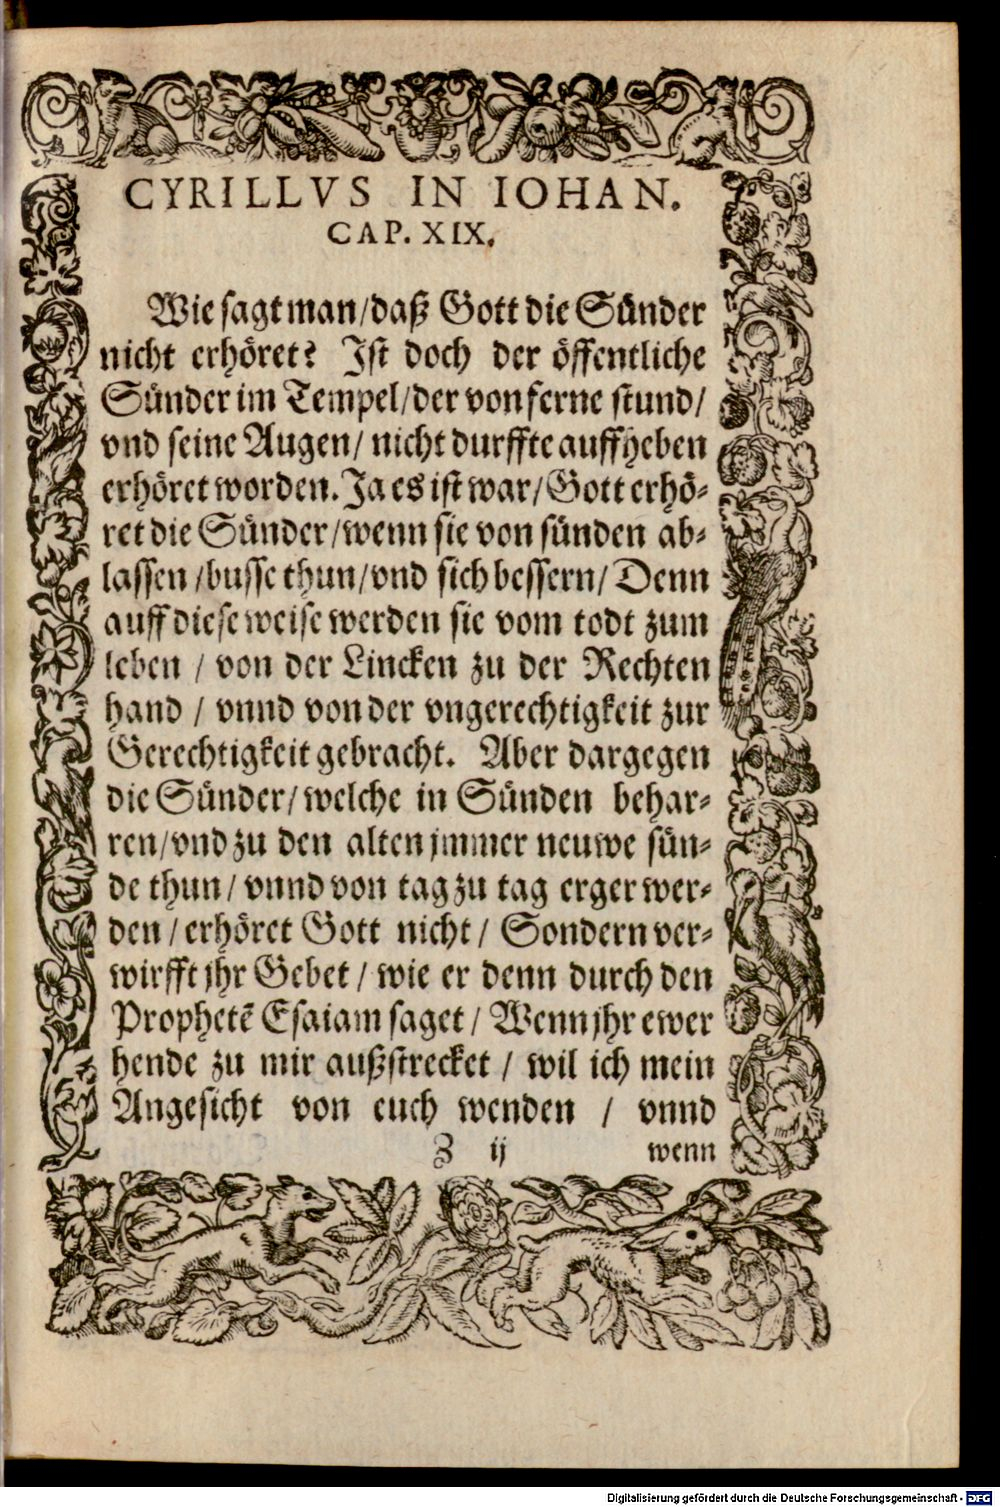 CYRILLVS IN IOHAN.
CAP. XIX.
Wie sagt man/daß Gott die Sünder
nicht erhöret? Ist doch der öffentliche
Sünder im Tempel/der von ferne stund/
vnd seine Augen/ nicht durffte auffheben
erhöret worden. Ja es ist war/Gott erhö⸗
ret die Sünder/wenn sie von sünden ab⸗
lassen/busse thun/vnd sich bessern/Denn
auff diese weise werden sie vom todt zum
leben / von der Lincken zu der Rechten
hand / vnnd von der vngerechtigkeit zur
Gerechtigkeit gebracht. Aber dargegen
die Sünder/welche in Sünden behar⸗
ren/vnd zu den alten jmmer neuwe sün⸗
de thun/ vnnd von tag zu tag erger wer⸗
den / erhöret Gott nicht / Sondern ver⸗
wirfft jhr Gebet / wie er denn durch den
Prophetē Esaiam saget / Wenn jhr ewer
hende zu mir außstrecket / wil ich mein
Angesicht von euch wenden / vnnd
Z ij wenn
Digitalisierung gefördert durch die Deutsche Forschungsgemeinschaft - DFG